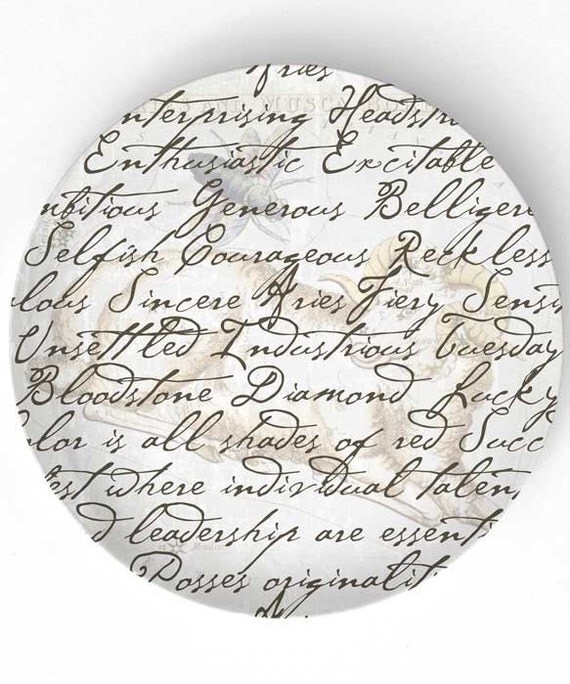 Aries
nterprising Headstr
AND MUSCA BOR
Enthusiastic Excitable
mbitious Generous Belligere
Selfish Courageous Reckless
lous Sincere Aries Fiery Sensi
Unsettled Industrious Tuesday
Bloodstone Diamond Lucky
olor is all shades of red Succ
est where individual talen
d leadership are essenti
Posses originalit